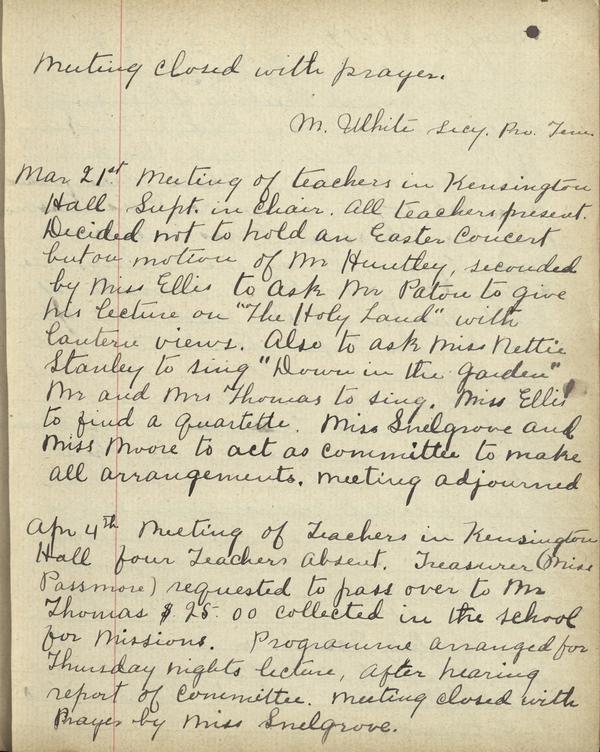 Meeting closed with prayer.
M. White Secy. Pro. Tem.
Mar 21st Meeting of teachers in Kensington
Hall Supt. in Chair. All teachers present.
Decided not to hold an Easter Concert
but on motion of Mr Huntley, seconded
by Miss Ellis to ask Mr Paton to give
his lecture on "The Holy Land" with
lantern views. Also to ask Miss Nettie
Stanley to sing "Down in the garden"
Mr and Mrs Thomas to sing. Miss Ellis
to find a quartette. Miss Snelgrove and
Miss Moore to act as committee to make
all arrangements. Meeting adjourned
Apr 4th Meeting of Teachers in Kensington
Hall four Teachers absent. Treasurer (Miss
Passmore) requested to pass over to Mr
Thomas $25.00 collected in the school
for Missions. Programme arranged for
Thursday nights lecture, after hearing
report of Committee. Meeting closed with
Prayer by Miss Snelgrove.